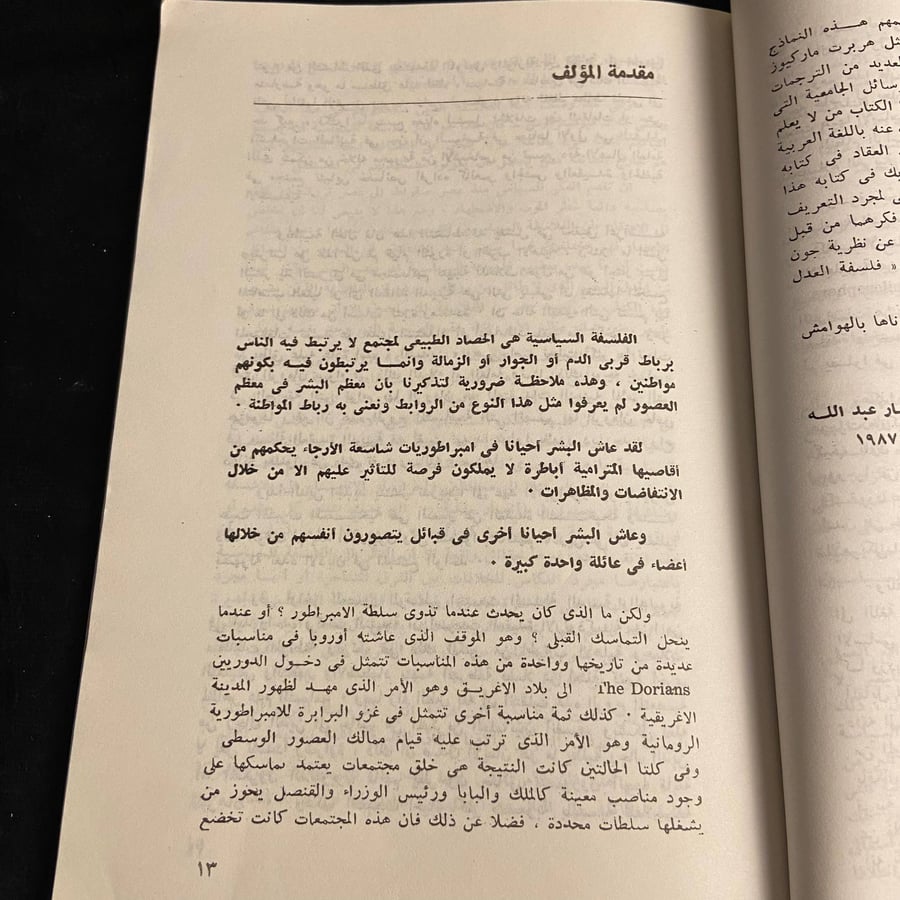 مقدمة المؤلف
الفلسفة السياسية هى الحصاد الطبيعى لمجتمع لا يرتبط فيه الناس
برباط قربى الدم أو الجوار أو الزمالة وانمـــا يرتبطون فيـه بكونهم
مواطنين ، وهذه ملاحظـة ضرورية لتذكيرنا بأن معظم البشر فى معظم
العصور لم يعرفوا مثل هذا النوع من الروابط ونعنى به رباط المواطنة ٠
لقد عاش البشر أحيانا فى امبراطوريات شاسعة الأرجاء يحكمهم من
أقاصيها المترامية أباطرة لا يملكون فرصة للتأثير عليهم الا من خلال
الانتفاضات والمظاهرات ٠
وعاش البشر أحيانا أخرى فى قبائل يتصورون أنفسهم من خلالها
أعضاء فى عائلة واحدة كبيرة ٠
ولكن ما الذى كان يحدث عندما تذوى سلطة الامبراطور ؟ أو عندما
ينحل التماسك القبلى ؟ وهو الموقف الذى عاشته أوروبا فى مناسبات
عديدة من تاريخها وواحدة من هذه المناسبات تتمثل فى دخـول الدوريين
The Dorians الى بلاد الاغريـق وهو الأمر الذى مهـد لظهور المدينة
الاغريقية ٠ كذلك ثمة مناسبة أخرى تتمثل فى غزو البرابرة للامبراطورية
الرومانية وهو الأمر الذى ترتب عليه قيام ممالك العصور الوسطى
وفى كلتا الحالتين كانت النتيجة هى خلق مجتمعات يعتمد تماسكها على
وجود مناصب معينة كالملك والبابا ورئيس الوزراء والقنصل يحوز من
يشغلها سلطات محددة ، فضلا عن ذلك فان هذه المجتمعات كانت تخضع
١٣
هـــذه النماذج
هربرت ماركيوز
من الترجمات
الجامعية التى
الكتاب من لا يعلم
عنه باللغة العربية
العقاد فى كتابه
فى كتابه هذا
لمجرد التعريف
فكرهما من قبل
عن نظرية جون
« فلسفة العدل
بالهوامش
عبد اللـه
١٩٨٧